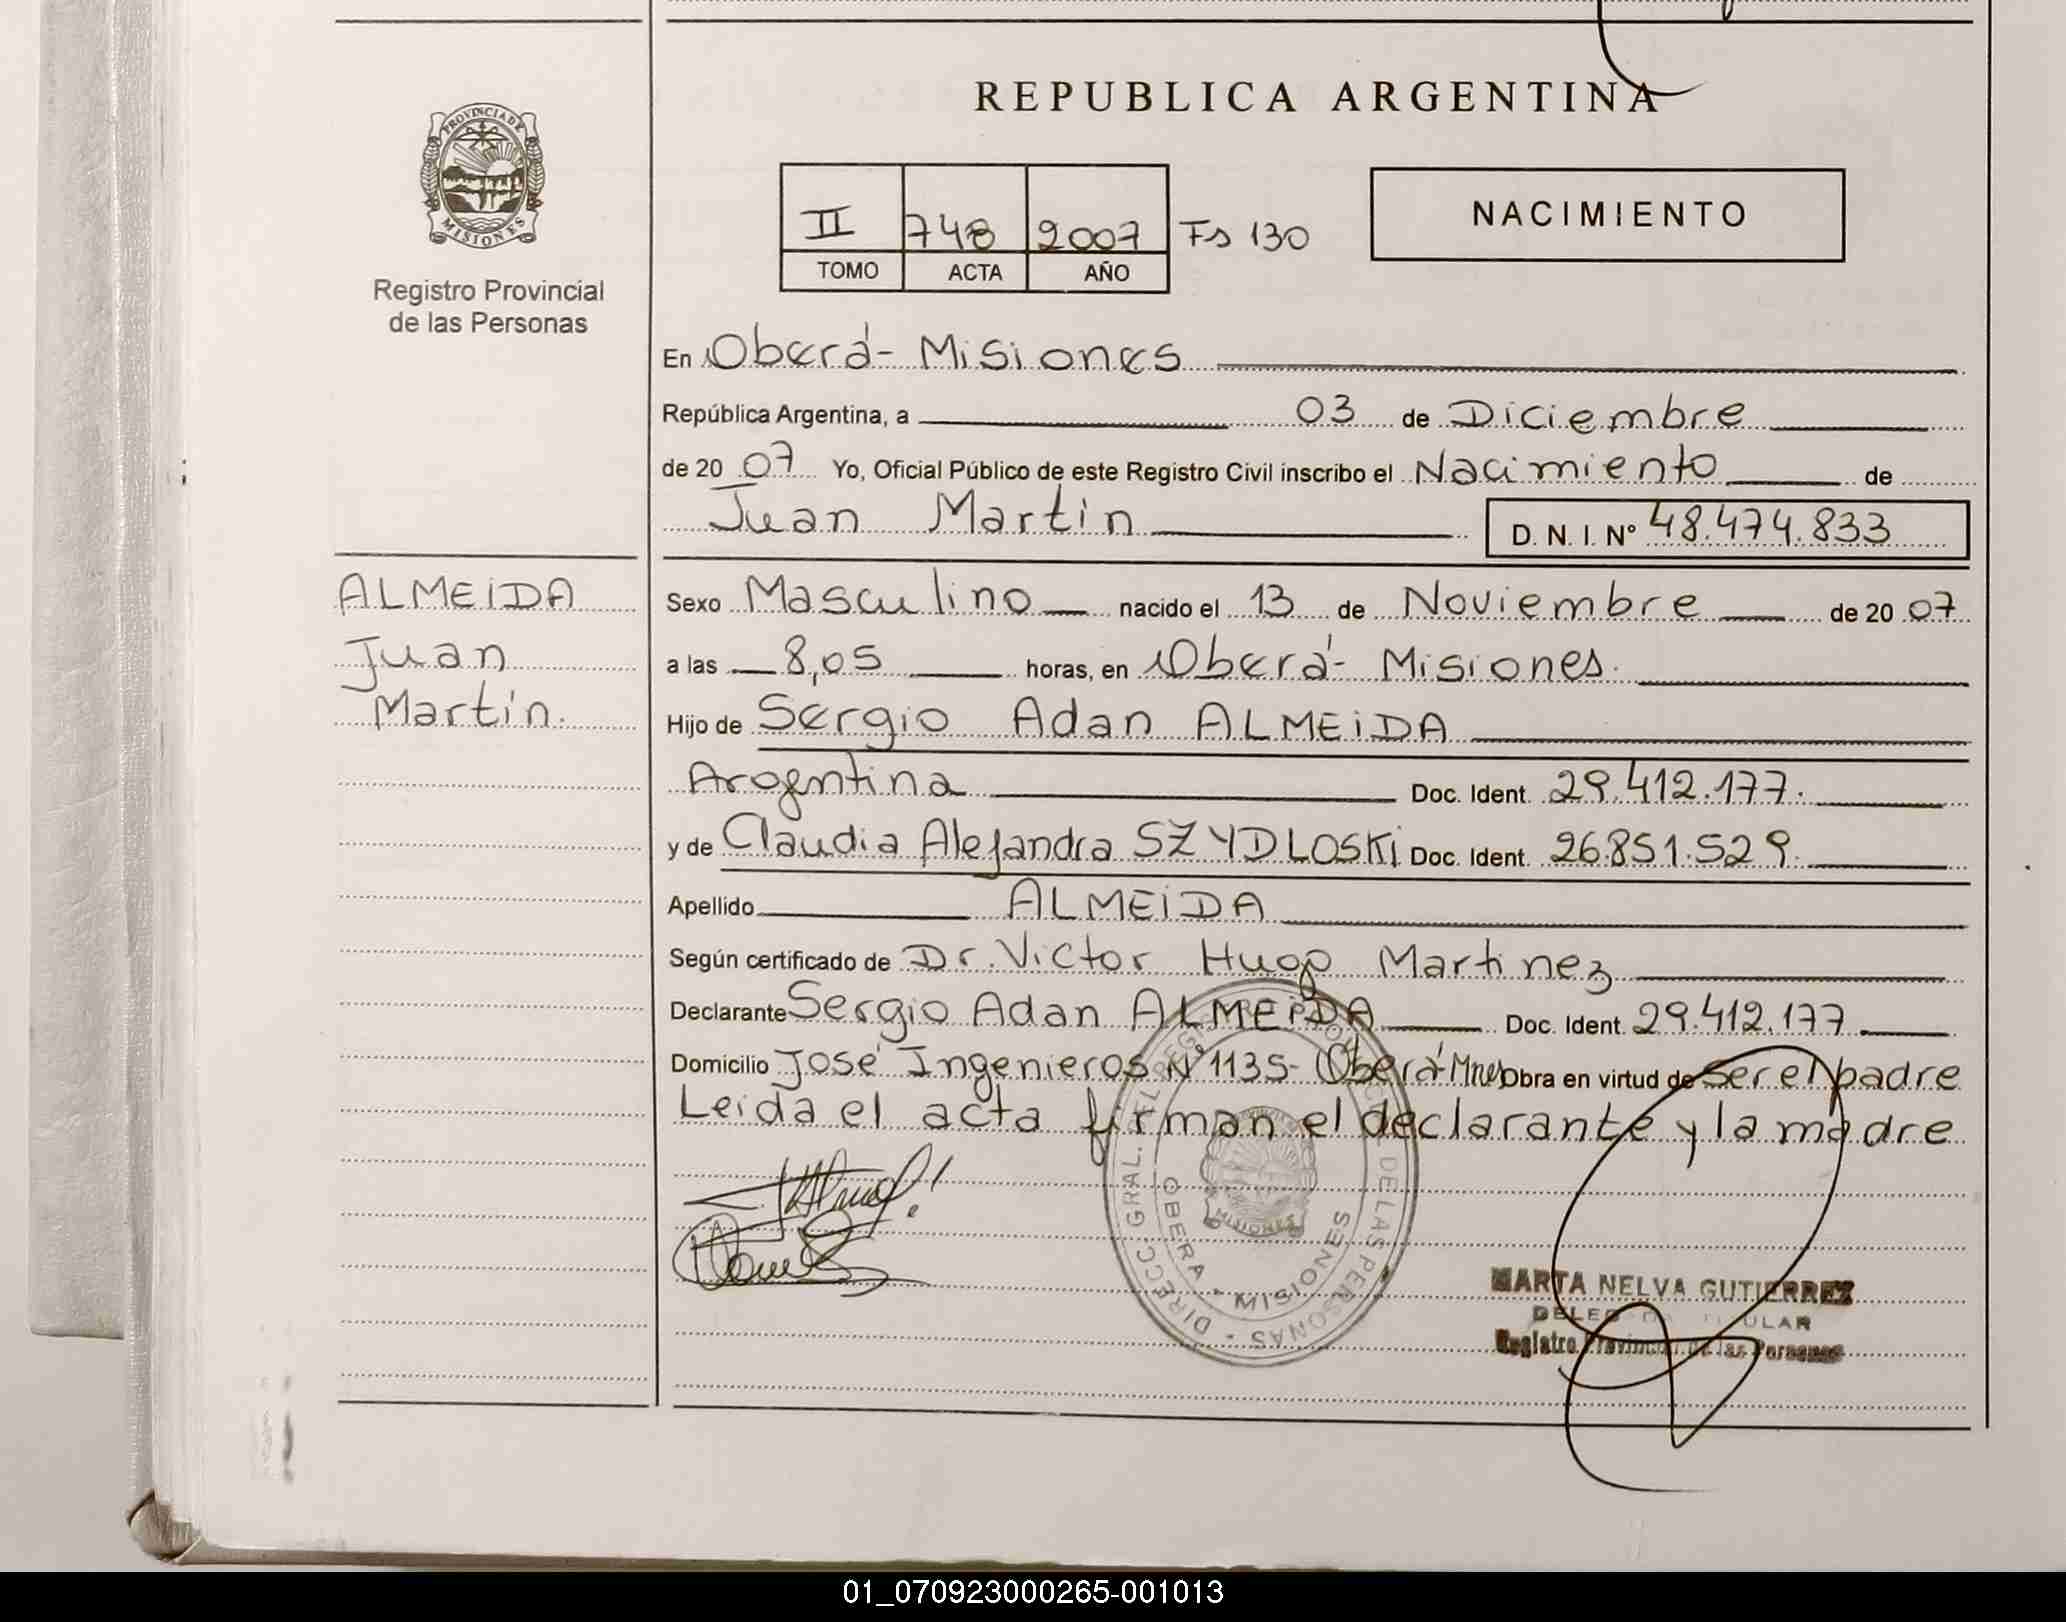 REPUBLICA ARGENTINA
PROVINCIA DE MISIONES
Registro Provincial
de las Personas
II 748 2007 Fs 130
TOMO ACTA AÑO
NACIMIENTO
En Oberá - Misiones
República Argentina, a 03 de Diciembre
de 20 07 Yo, Oficial Público de este Registro Civil inscribo el Nacimiento de
Juan Martin
D. N. I. Nº 48.474.833
ALMEIDA
Juan
Martín.
Sexo Masculino nacido el 13 de Noviembre de 20 07
a las 8,05 horas, en Oberá - Misiones.
Hijo de Sergio Adan ALMEIDA
Argentina Doc. Ident. 29.412.177.
y de Claudia Alejandra SZYDLOSKi Doc. Ident. 26.851.529.
Apellido ALMEIDA
Según certificado de Dr. Victor Hugo Martinez
Declarante Sergio Adan ALMEIDA Doc. Ident. 29.412.177
Domicilio José Ingenieros Nº 1135 - Oberá Mnes Obra en virtud de Ser el padre
Leida el acta firman el declarante y la madre
DIRECC. GRAL. DEL REG. DE LAS PERSONAS
OBERA - MISIONES
MISIONES
MARTA NELVA GUTIERREZ
Registro Provincial de las Personas
01_070923000265-001013